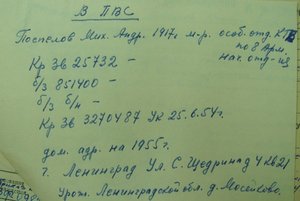 В ПВС
Поспелов Мих. Андр. 1917г м-р. особ. отд. КГБ
по 8 Арм.
нач. отд-ия
Кр Зв 25732 —
б/з 851400 —
б/з б/н —
Кр Зв 3270487 Ук 25.6.54г.
дом. адр. на 1955г.
г. Ленинград Ул. С. Щедрина д 4 кв 21
Урож. Ленинградской обл. д.